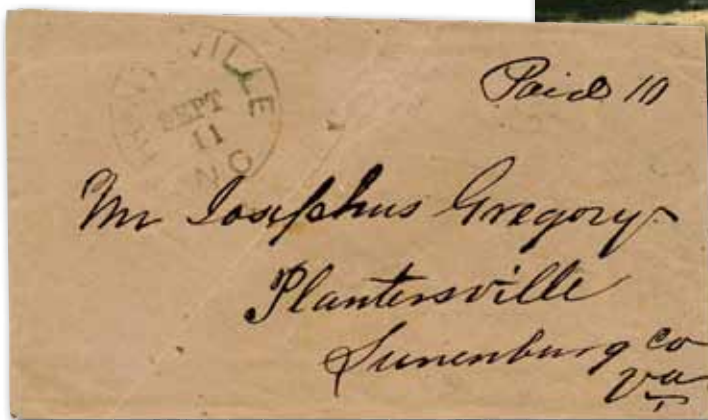 VILLE
SEPT
11
N C
Paid 10
Mr Josephus Gregory
Plantersville
Lunenburg Co
Va